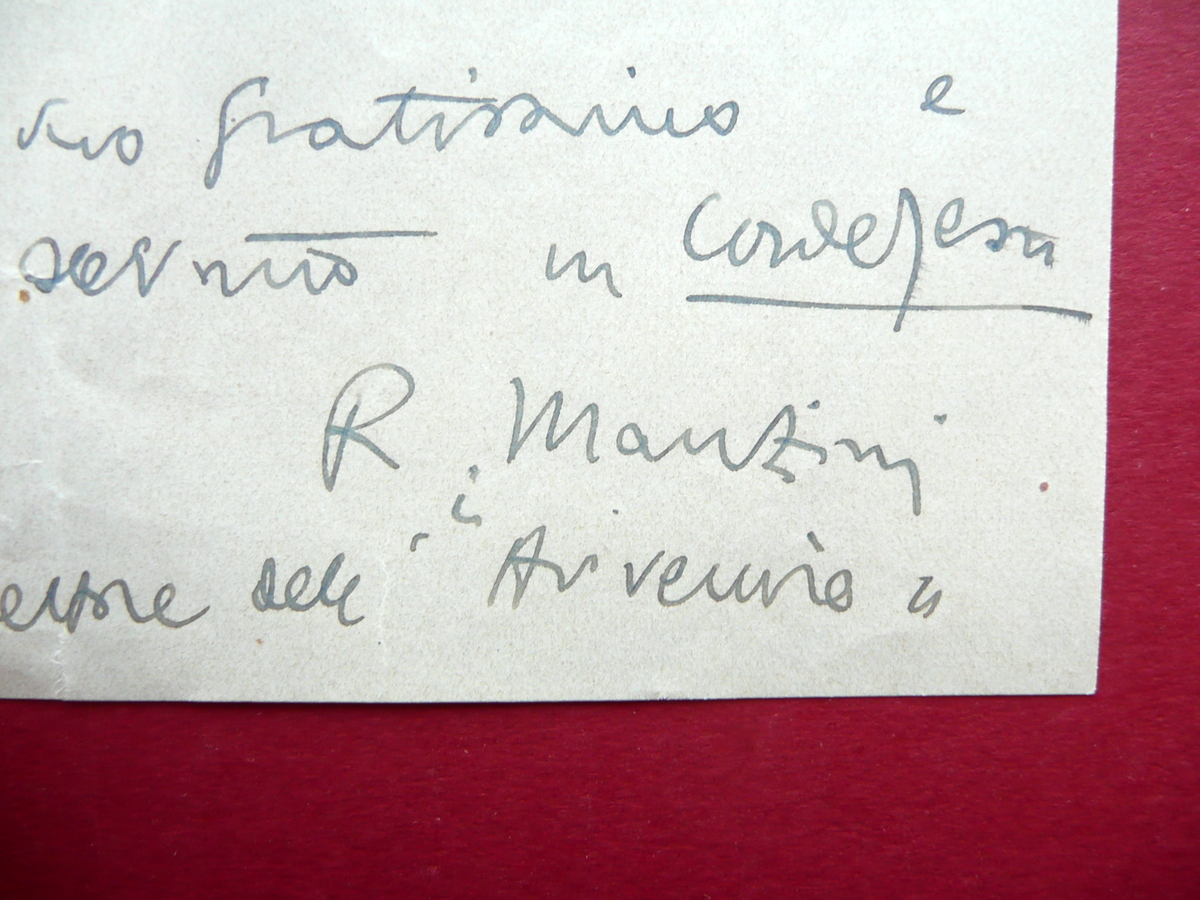 suo gratissimo e
dev mo in Corde Jesu
R. Manzini
ettore dell' "Avvenire"